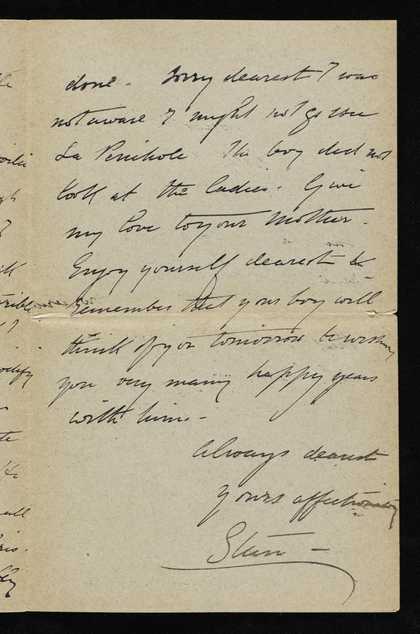 done. Sorry dearest I was
not aware I might not go see
La Perichole The boy did not
look at the ladies. Give
my love to your Mother.
Enjoy yourself dearest &
remember that your boy will
think of you tomorrow & wishing
you very many happy years
with him -
Always dearest
yours affectionately